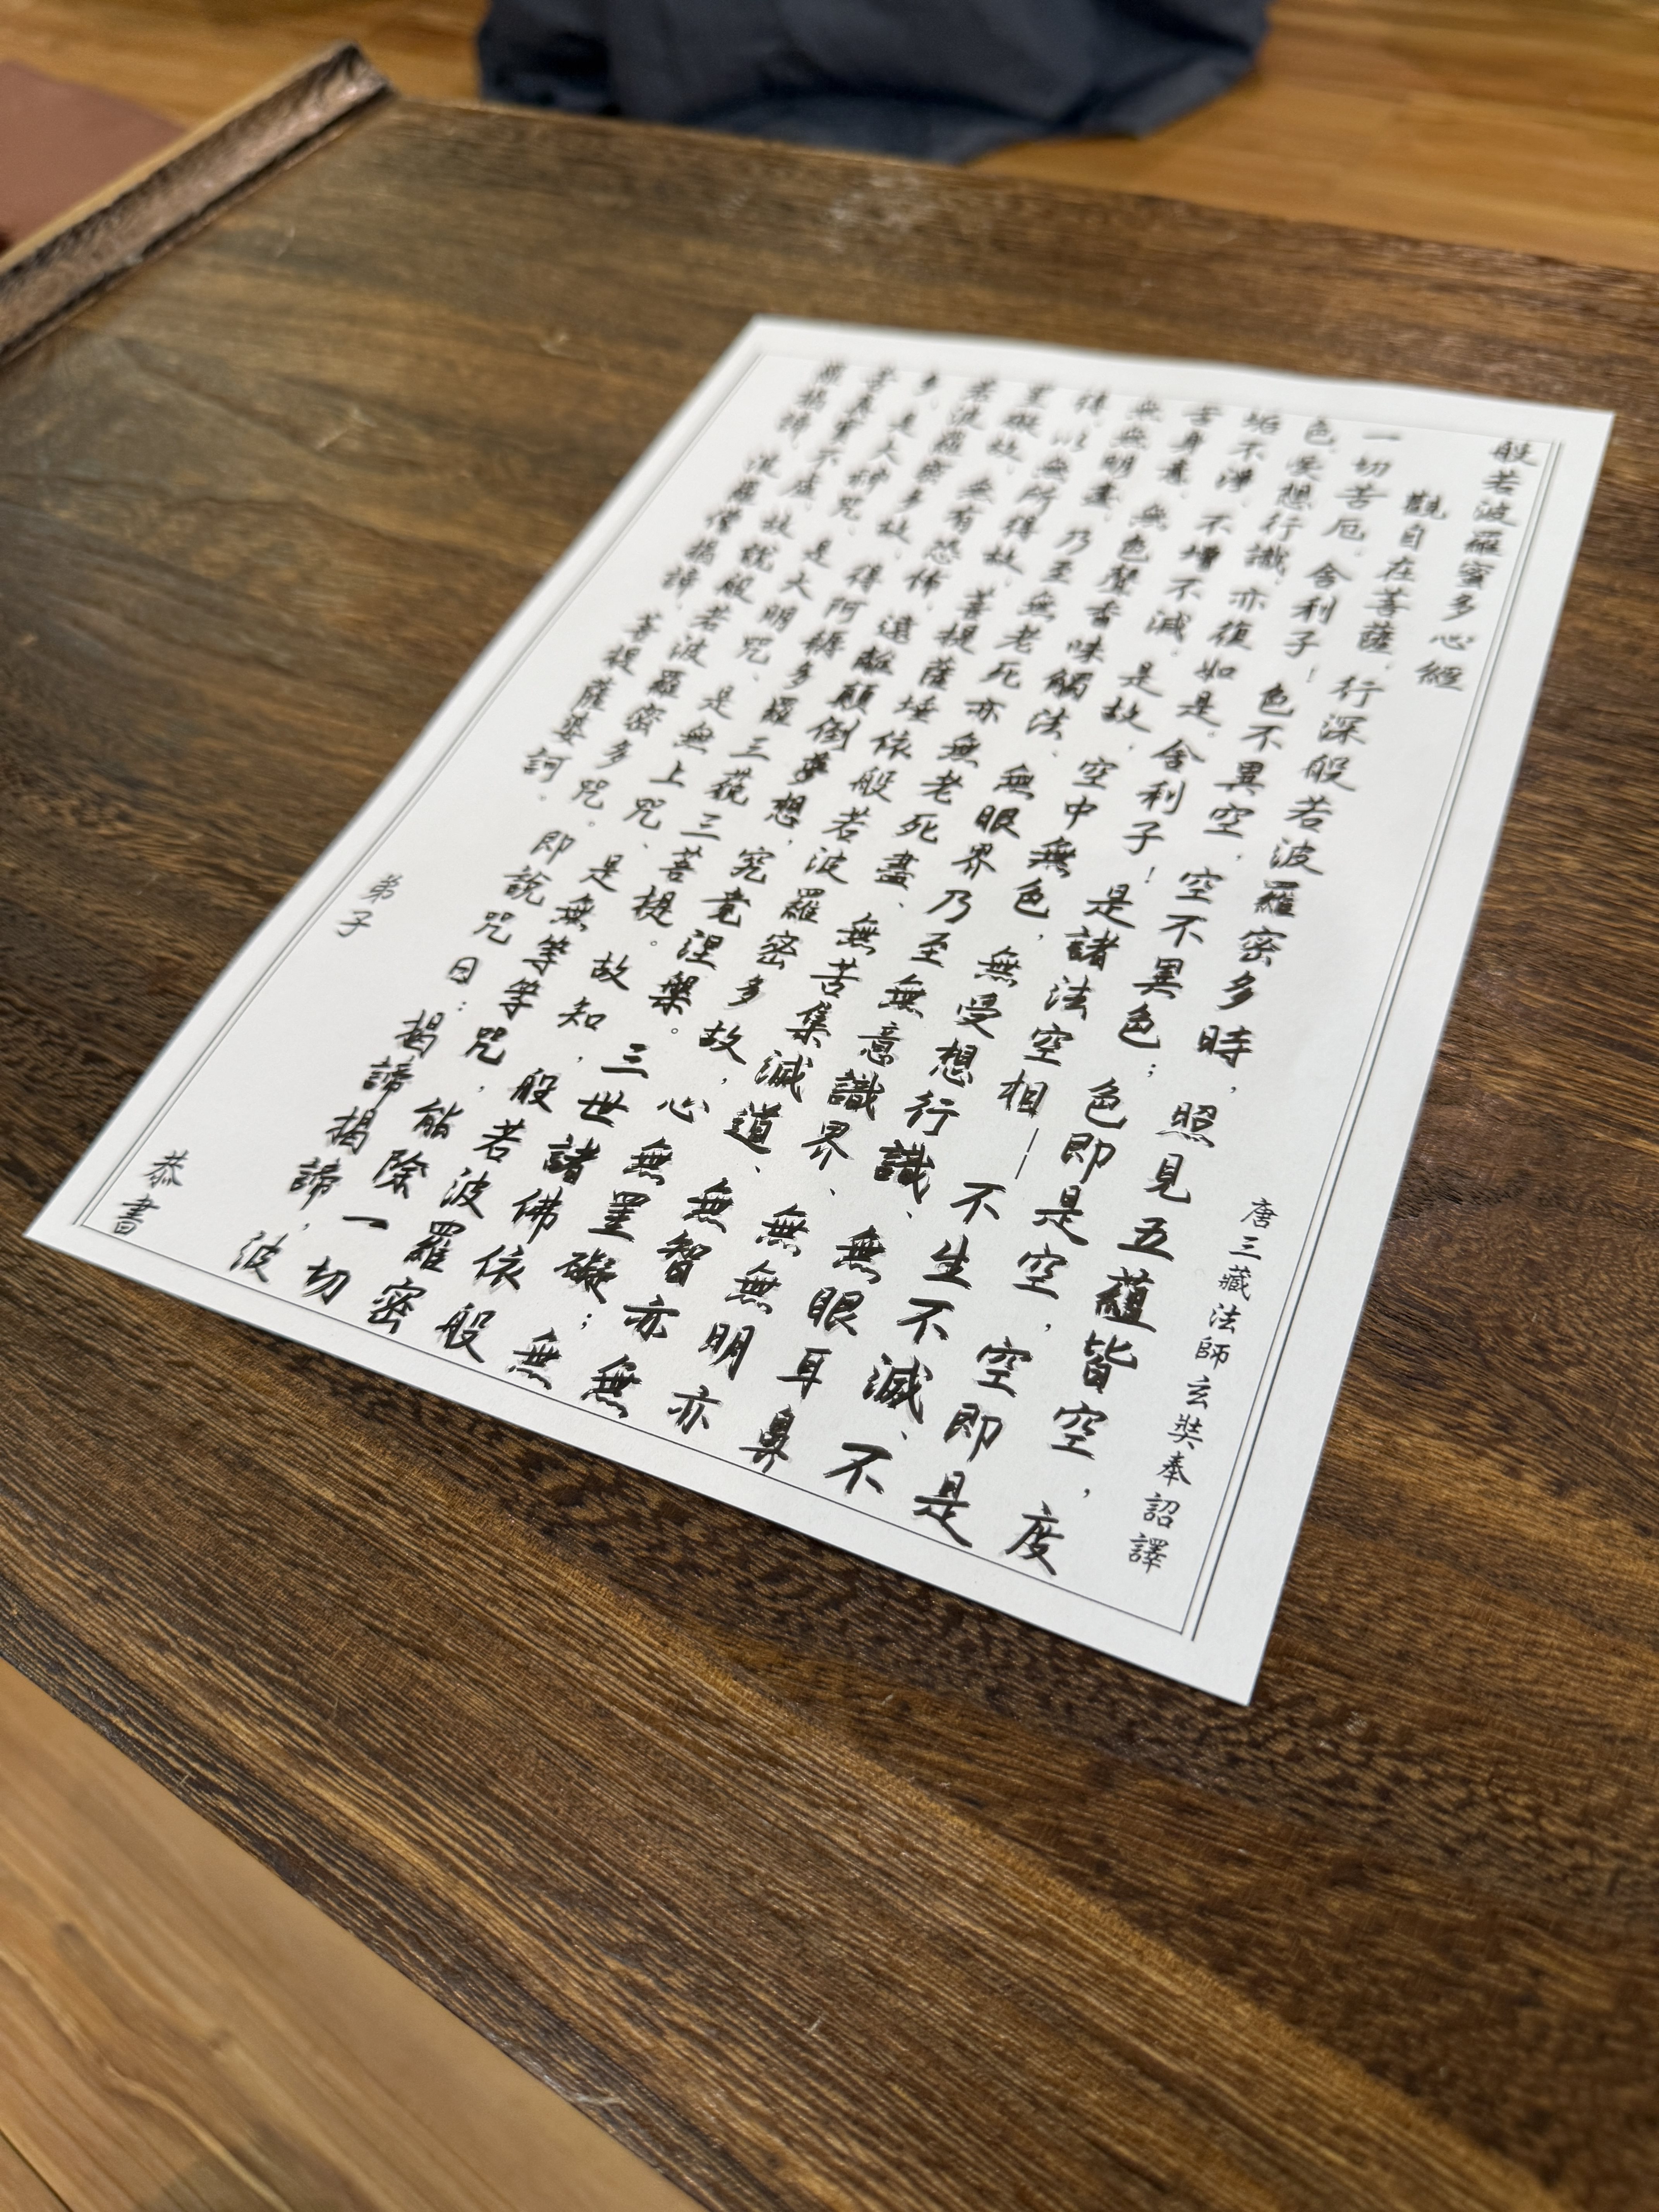 般若波羅蜜多心經
唐三藏法師玄奘奉詔譯
觀自在菩薩,行深般若波羅密多時,照見五蘊皆空,度
一切苦厄。舍利子!色不異空,空不異色;色即是空,空即是
色,受想行識,亦復如是。舍利子!是諸法空相——不生不滅、不
垢不淨、不增不減。是故,空中無色,無受想行識、無眼耳鼻
舌身意、無色聲香味觸法、無眼界乃至無意識界、無無明亦
無無明盡,乃至無老死亦無老死盡、無苦集滅道、無智亦無
得。以無所得故,菩提薩埵依般若波羅密多故,心無罣礙;無
罣礙故,無有恐怖,遠離顛倒夢想,究竟涅槃。三世諸佛依般
若波羅密多故,得阿耨多羅三藐三菩提。故知,般若波羅密
多,是大神咒、是大明咒、是無上咒、是無等等咒,能除一切
苦真實不虛。故說般若波羅密多咒。即說咒曰:揭諦揭諦,波
羅揭諦,波羅僧揭諦,菩提薩婆訶。
弟子 恭書